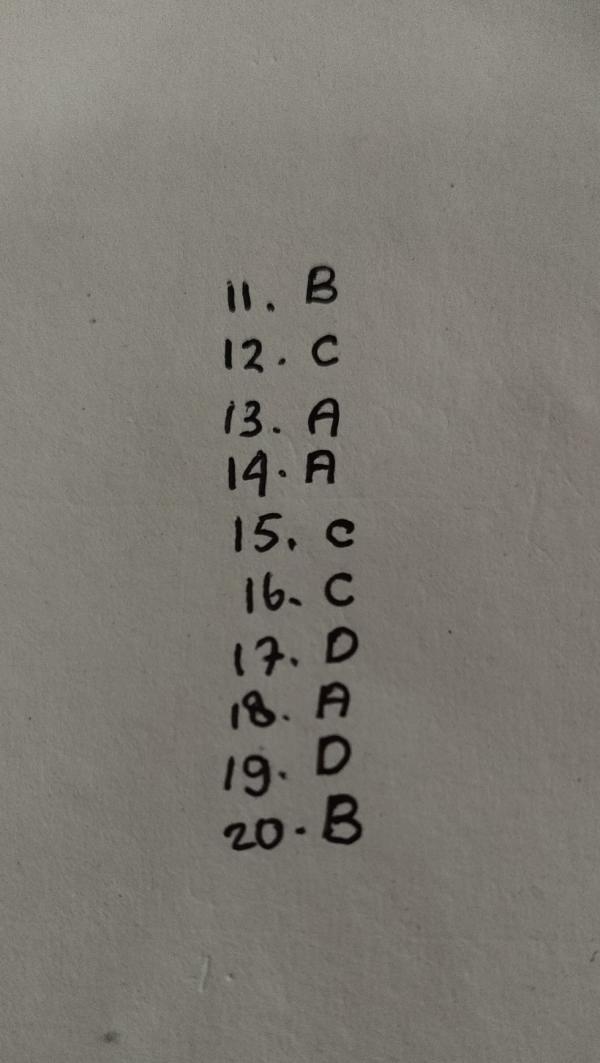 11. B
12. C
13. A
14. A
15. C
16. C
17. D
18. A
19. D
20. B